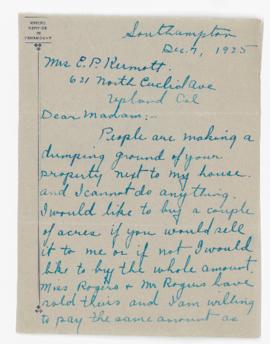 Southampton
Dec. 7, 1925
Mrs E. P. Kermott.
621 North Euclid Ave
Upland Cal
Dear Madam:-
People are making a
dumping ground of your
property next to my house.
and I cannot do any thing.
I would like to buy a couple
of acres if you would sell
it to me or if not I would
like to buy the whole amount.
Miss Rogers & Mr Rogers have
sold theirs and I am willing
to pay the same amount as